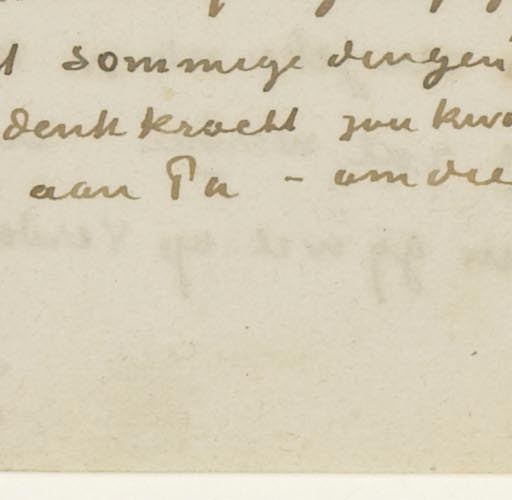 sommige dingen
denkkracht zou kwa
aan Pa - om die